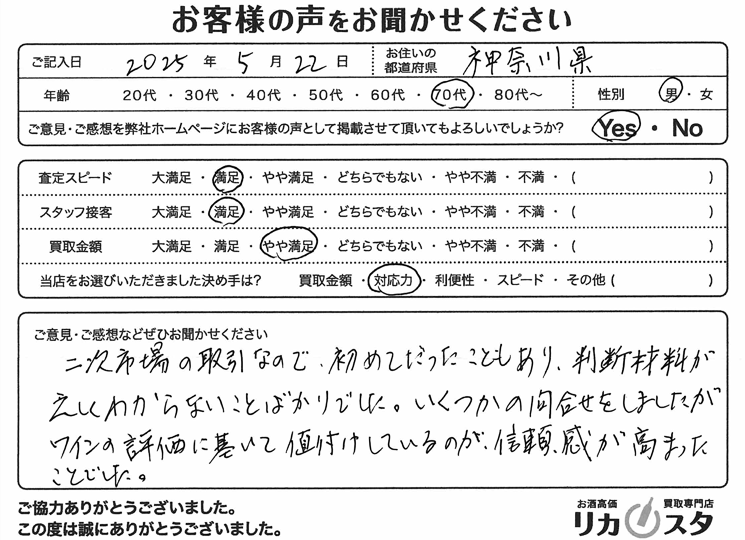 お客様の声をお聞かせください
ご記入日 2025 年 5 月 22 日 お住いの都道府県 神奈川県
年齢 20代 ・ 30代 ・ 40代 ・ 50代 ・ 60代 ・ 70代 ・ 80代～ 性別 男 ・ 女
ご意見・ご感想を弊社ホームページにお客様の声として掲載させて頂いてもよろしいでしょうか? Yes ・ No
査定スピード 大満足 ・ 満足 ・ やや満足 ・ どちらでもない ・ やや不満 ・ 不満 ・ ( )
スタッフ接客 大満足 ・ 満足 ・ やや満足 ・ どちらでもない ・ やや不満 ・ 不満 ・ ( )
買取金額 大満足 ・ 満足 ・ やや満足 ・ どちらでもない ・ やや不満 ・ 不満 ・ ( )
当店をお選びいただきました決め手は? 買取金額 ・ 対応力 ・ 利便性 ・ スピード ・ その他 ( )
ご意見・ご感想などぜひお聞かせください
二次市場の取引なので、初めてだったこともあり、判断材料が
わからないことばかりでした。いくつかの問合せをしましたが
ワインの評価に基いて値付けしているのが、信頼感が高まった
ことでした。
ご協力ありがとうございました。
この度は誠にありがとうございました。
お酒高価 買取専門店
リカスタ